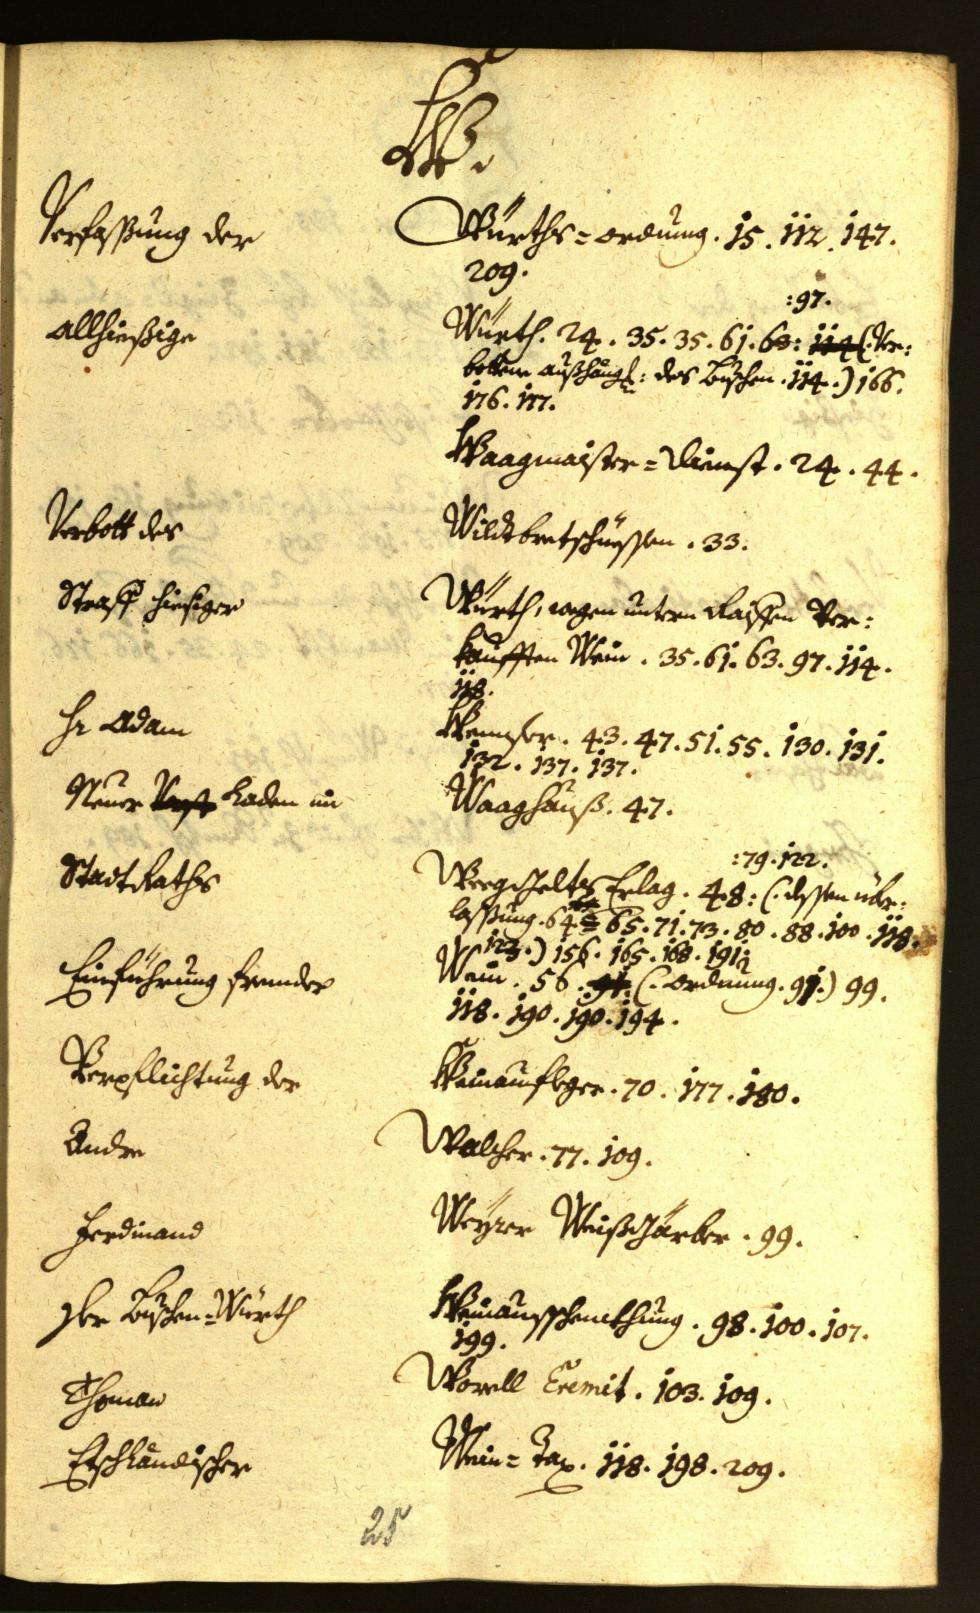 W.
Verfassung der Würths=ordnung. 15. 112. 147.
209.
:97.
allhießige Würth. 24. 35. 35. 61. 63: 114 (: Ver:
bottene außhäng: des Buschen. 114.) 166.
176. 177.
Waagmaister=dienst. 24. 44.
Verbott des Wildtbretschüessen. 33.
Straff hiesiger Würth, wegen untern Raiffen Ver:
kaufften Wein. 35. 61. 63. 97. 114.
118.
Hr Adam Wenser. 43. 47. 51. 55. 130. 131.
132. 137. 137.
Neuer Laden im Waaghauß. 47.
:79. 122.
Stadt Raths Weeggeltes Erlag. 48: (: dessen über:
lassung. 64 65. 71. 73. 80. 88. 100. 118.
123.) 156. 165. 168. 191:
Einführung frembder Wein. 56. 91: (: ordnung. 91.) 99.
118. 190. 190. 194.
Verpflichtung der Weinaufleger. 70. 177. 180.
Andre Walcher. 77. 109.
Ferdinand Weyrer Weißgärber. 99.
Der Buschen=Würth Weinausschenckhung. 98. 100. 107.
199.
Thoman Worell Eremit. 103. 109.
Etschländischer Wein=Tax. 118. 198. 209.
25